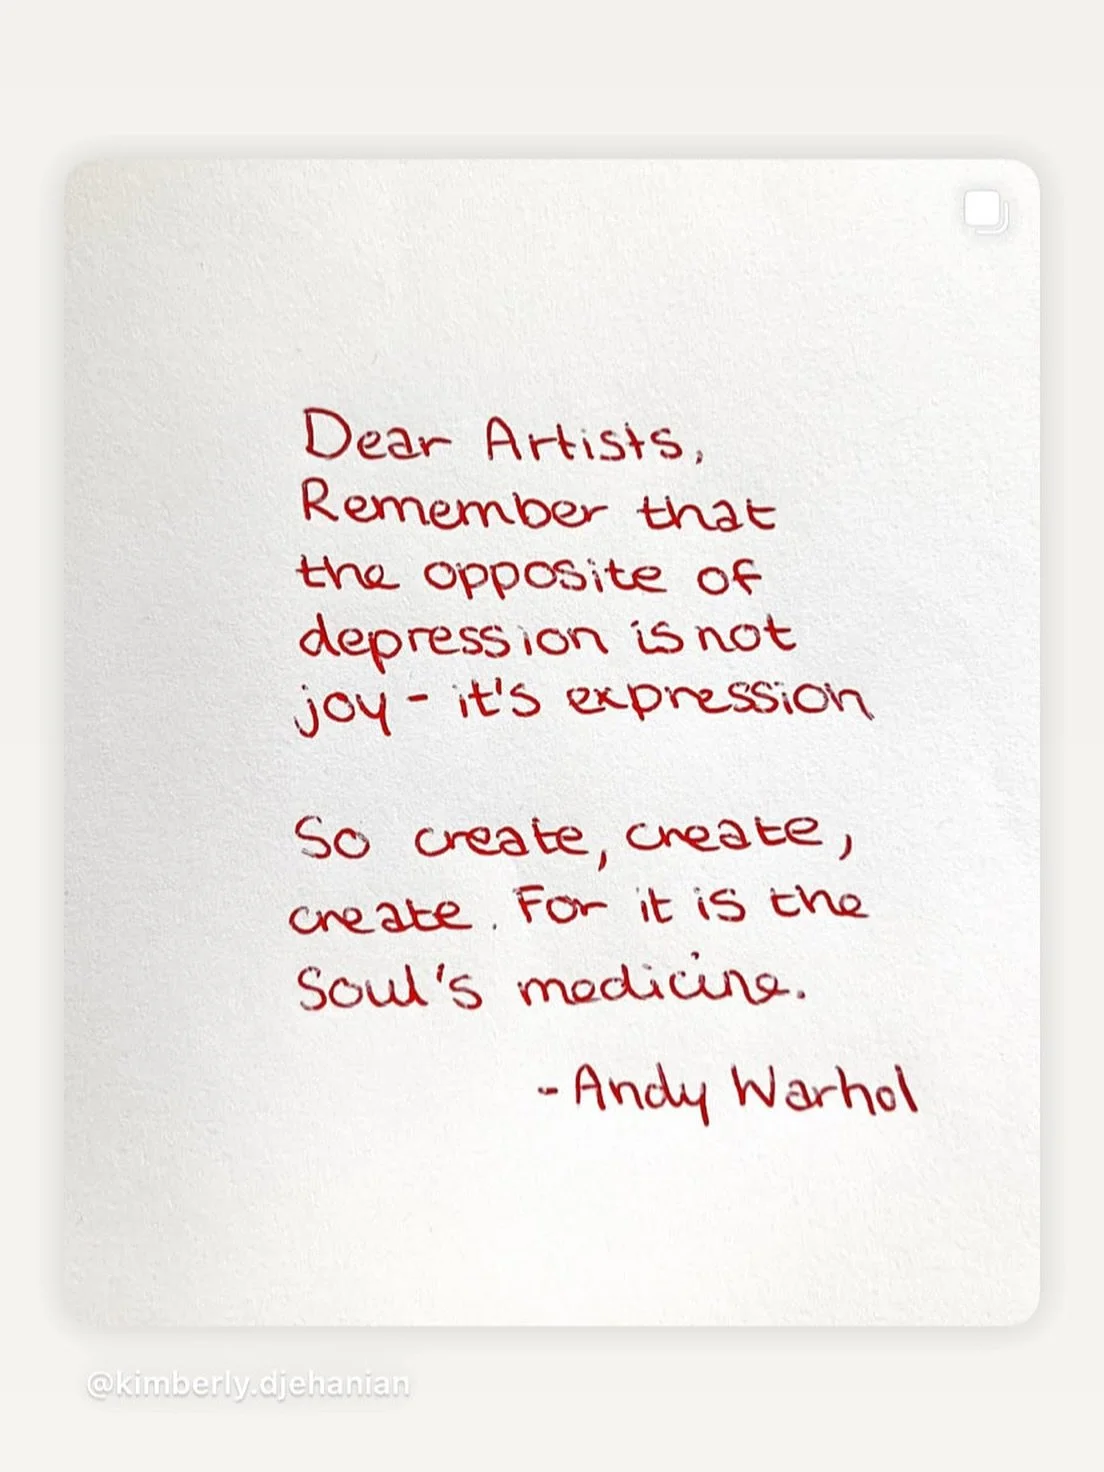 Dear Artists,
Remember that
the opposite of
depression is not
joy - it's expression
So create, create,
create. For it is the
Soul's medicine.
- Andy Warhol
@kimberly.djehanian